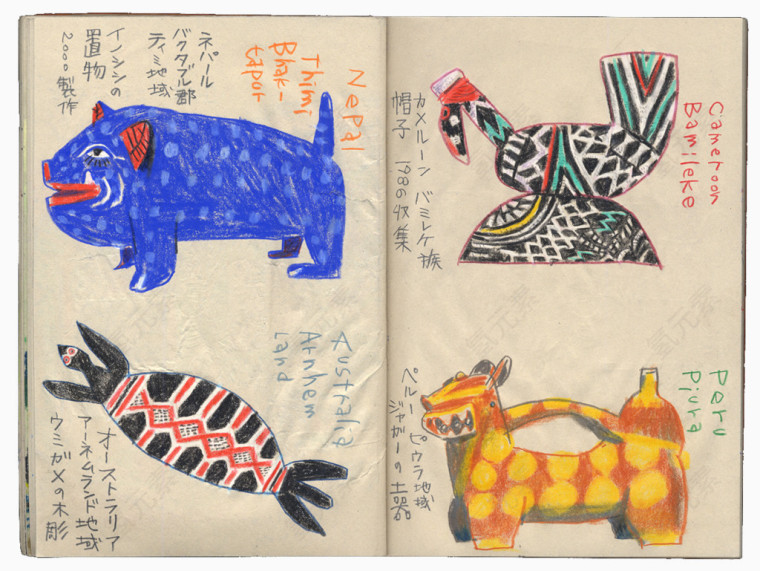 Nepal
Thimi
Bhak-
tapur
ネパール
バクタプル郡
ティミ地域
イノシシの
置物
2000製作
Australia
Arnhem
Land
オーストラリア
アーネムランド地域
ウミガメの木彫
Cameroon
Bamileke
カメルーン バミレケ族
帽子 1980収集
Peru
Piura
ペルー ピウラ地域
ジャガーの土器